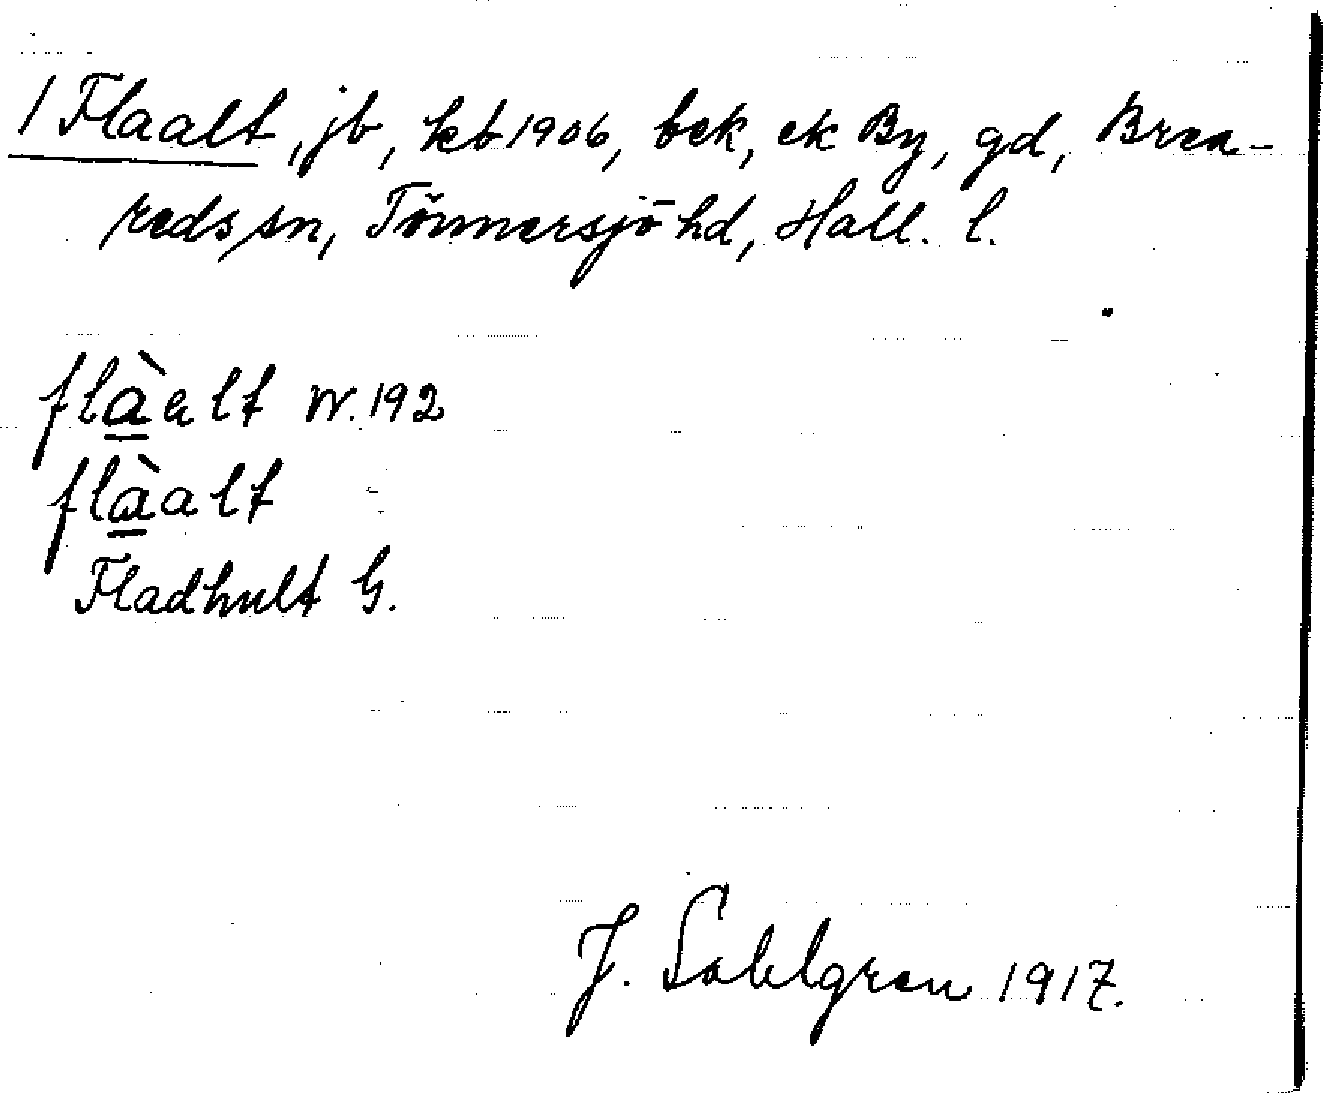 1 Flaalt, jb, kb 1906, bek, ek By, gd, Brea-
reds sn, Tönnersjö hd, Hall. l.
flàalt W. 192
flàalt
Fladhult G.
J. Sahlgren 1917.